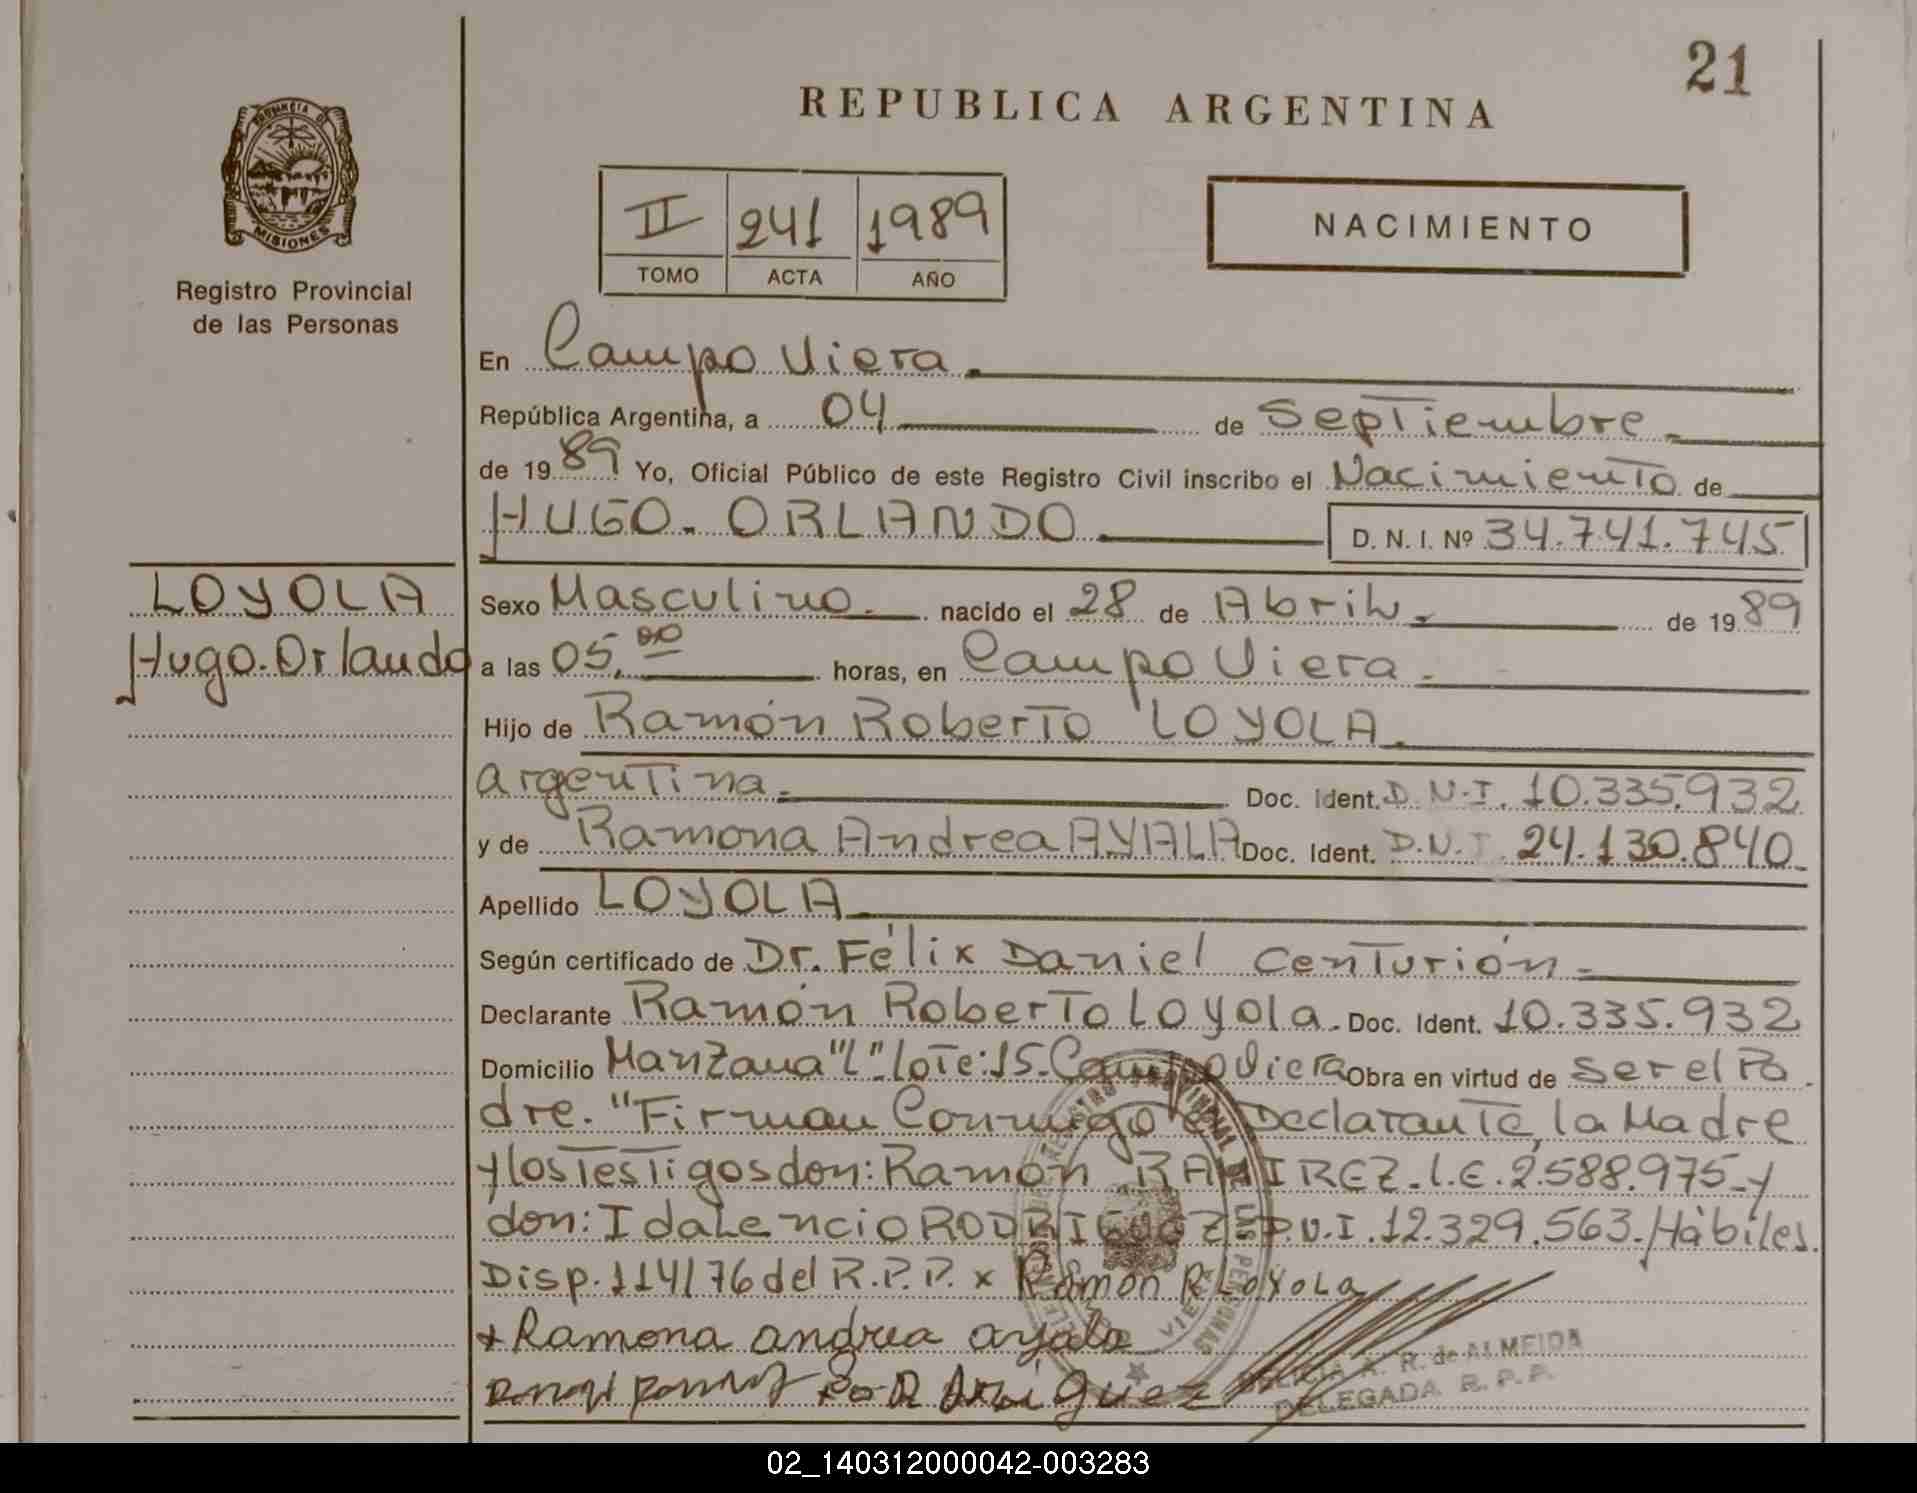 21
REPUBLICA ARGENTINA
PROVINCIA DE
MISIONES
Registro Provincial
de las Personas
II 241 1989
TOMO ACTA AÑO
NACIMIENTO
En Campo Viera.
República Argentina, a 04 de Septiembre
de 1989 Yo, Oficial Público de este Registro Civil inscribo el Nacimiento de
HUGO. ORLANDO D. N. I. Nº 34.741.745
LOYOLA
Hugo. Orlando
Sexo Masculino. nacido el 28 de Abril. de 1989
a las 05,00 horas, en Campo Viera.
Hijo de Ramón Roberto LOYOLA.
argentina. Doc. Ident. D.N.I. 10.335.932
y de Ramona Andrea AYALA Doc. Ident. D.N.I. 24.130.840
Apellido LOYOLA
Según certificado de Dr. Félix Daniel Centurión
Declarante Ramón Roberto Loyola. Doc. Ident. 10.335.932
Domicilio Manzana "L" lote: 15. Campo Viera Obra en virtud de ser el Pa
dre. "Firman Conmigo el Declarante, la Madre
y los Testigos don: Ramón RAMIREZ. L.E. 2.588.975 y
don: Idalencio RODRIGUEZ D.N.I. 12.329.563. Hábiles.
Disp. 114/76 del R.P.P. x Ramon R Loyola
x Ramona andrea ayala
Rodriguez
FELICIA A. R. de ALMEIDA
DELEGADA R. P. P.
02_140312000042-003283